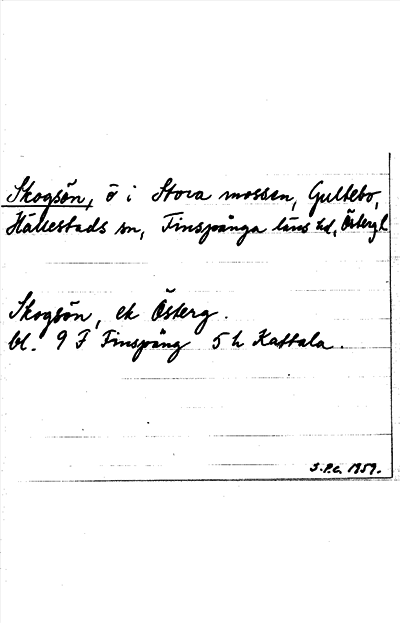 Skogsön, ö i Stora mossen, Gullebo,
Hällestads sn, Finspånga läns hd, Östergl
Skogsön, ek Österg.
bl. 9 F Finspång 5 h Kattala.
S.P.C. 1959.